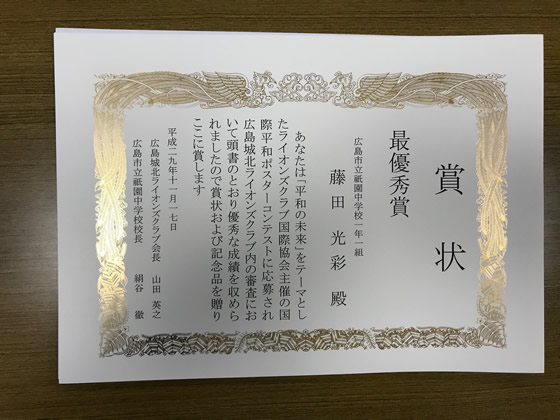 賞状
最優秀賞
広島市立祇園中学校一年一組
藤田光彩 殿
あなたは「平和の未来」をテーマとし
たライオンズクラブ国際協会主催の国
際平和ポスターコンテストに応募され
広島城北ライオンズクラブ内の審査にお
いて頭書のとおり優秀な成績を収めら
れましたので賞状および記念品を贈り
ここに賞します
平成二九年十一月一七日
広島城北ライオンズクラブ会長 山田 英之
広島市立祇園中学校校長 絹谷 徹